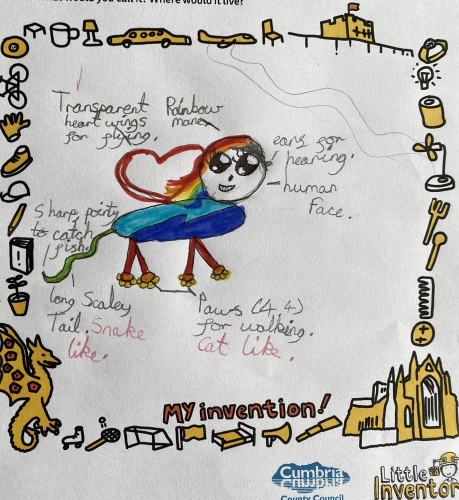 would you call it? Where would it live?
Transparent
heart wings
for flying.
Rainbow
mane
ears for
hearing.
human
Face.
Sharp pointy
to catch
fish.
long Scaley
Tail. Snake
like.
Paws (4.4)
for walking.
Cat like.
MY invention!
Cumbria
County Council
Little
Inventor